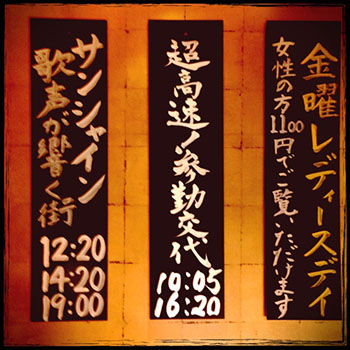 金曜レディースデイ
女性の方1100円でご覧いただけます
超高速!参勤交代
10:05
16:20
サンシャイン
歌声が響く街
12:20
14:20
19:00